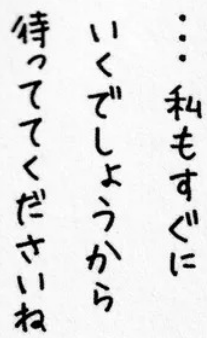 …私もすぐに
いくでしょうから
待っててくださいね